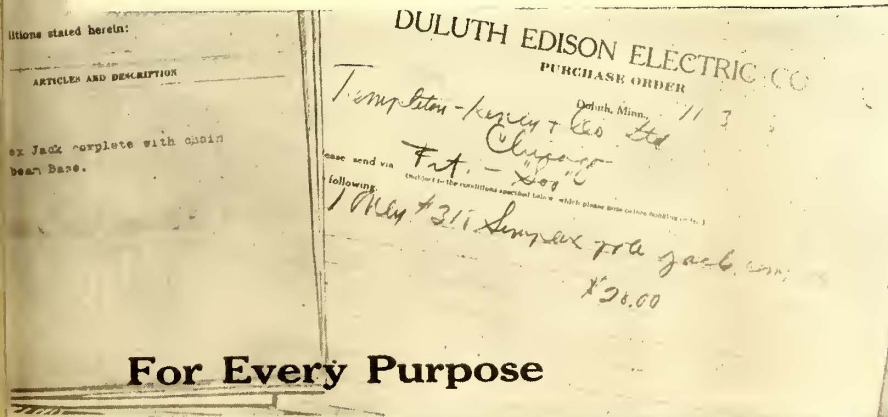 litions stated herein:
ARTICLES AND DESCRIPTION
ex Jack complete with chain
beam Base.
DULUTH EDISON ELECTRIC CO
PURCHASE ORDER
Duluth, Minn., 11 3
Templeton-Kenly & Co Ltd
Chicago
ease send via Frt. - "Soo"
(Subject to the conditions specified below which please note before
following.
1 #311 Simplex pole jack, com
$28.00
For Every Purpose